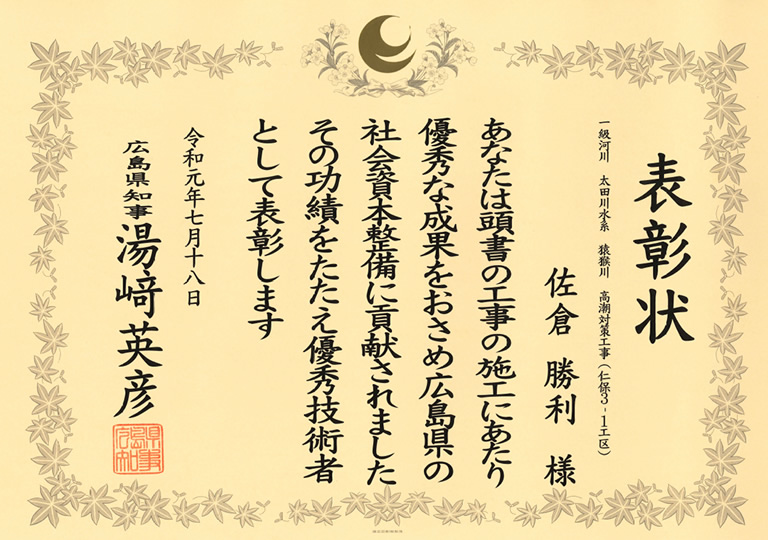 表彰状
一級河川　太田川水系　猿猴川　高潮対策工事（仁保３-１工区）
佐倉　勝利　様
あなたは頭書の工事の施工にあたり
優秀な成果をおさめ広島県の
社会資本整備に貢献されました
その功績をたたえ優秀技術者
として表彰します
令和元年七月十八日
広島県知事　湯﨑英彦